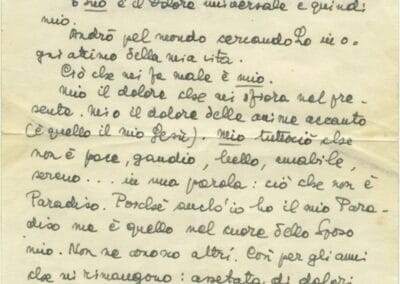 è mio è il dolore universale e quindi
mio.
Andrò pel mondo cercandoLo in o-
gni attimo della mia vita.
Ciò che mi fa male è mio.
Mio il dolore che mi sfiora nel pre-
sente. Mio il dolore delle anime accanto
(è quello il mio Gesù). Mio tuttociò che
non è pace, gaudio, bello, amabile,
sereno.... in una parola: ciò che non è
Paradiso. Poichè anch'io ho il mio Para-
diso ma è quello nel cuore dello Sposo
mio. Non ne conosco altri. Così per gli anni
che mi rimangono: assetata di dolori